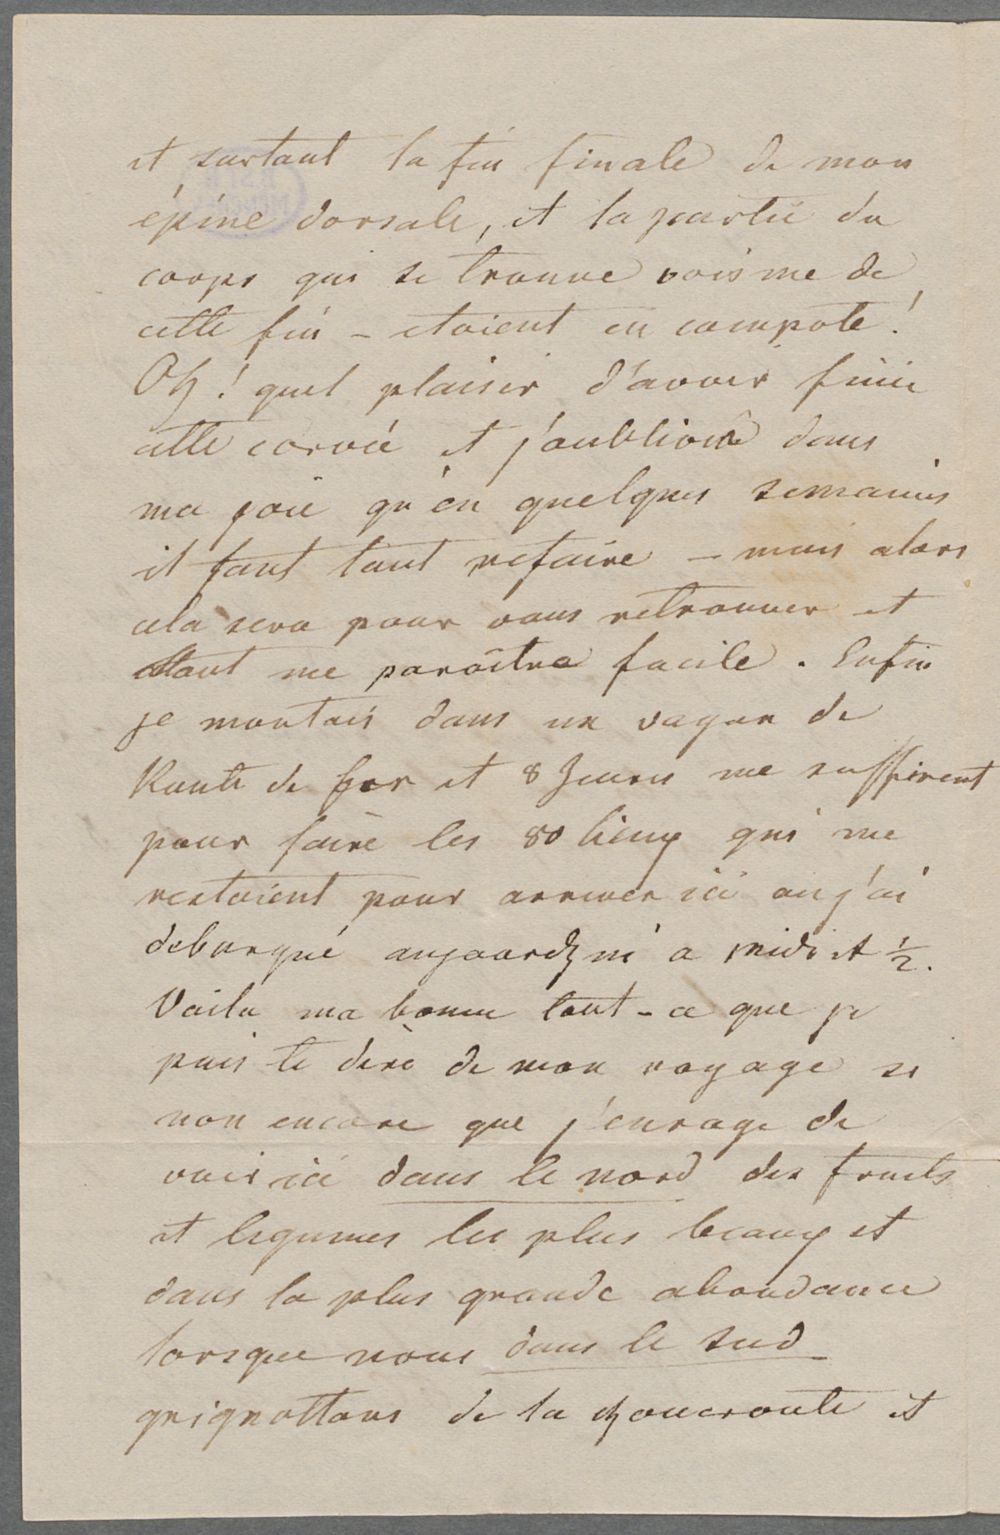 et surtout la fin finale de mon
épine dorsale, et la partie du
corps qui se trouve voisine de
cette fin – etoient en compote!
Oh! quel plaisir d'avoir fini
cette corvée et j'oubliois dans
ma joie qu'en quelques semaines
il faut tout refaire – mais alors
cela sera pour vous retrouver et
tout me paroîtra facile. Enfin
je montais dans un vagon de
Route de fer et 8 heures me suffirent
pour faire les 80 lieux qui me
restoient pour arriver ici ou j'ai
debarqué aujourdhui a midi et ½.
Voila ma bonne tout-ce que je
puis te dire de mon voyage si
non encore que j'enrage de
voir ici dans le nord des fruits
et legumes les plus beaux et
dans la plus grande abondance
lorsque nous dans le sud
grignottons de la choucroute et